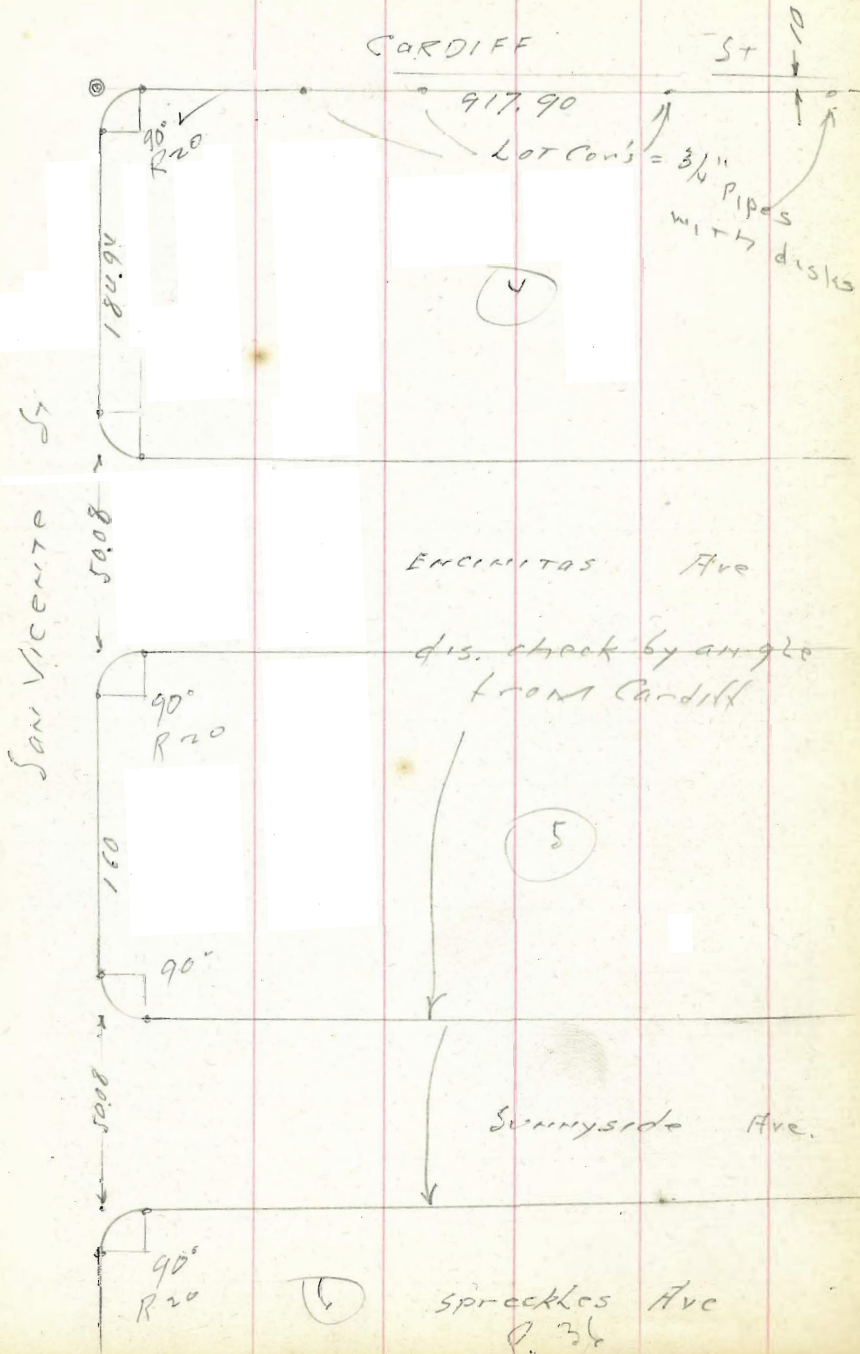 CARDIFF St
917.90
90°
R 20
Lot Cor's = 3/4" Pipes
with disks
184.94
4
San Vicente St
50.08
Encinitas Ave
dis. check by angle
from Cardiff
90°
R 20
5
160
90°
50.08
Sunnyside Ave.
90°
R 20
Spreckles Ave
P. 36